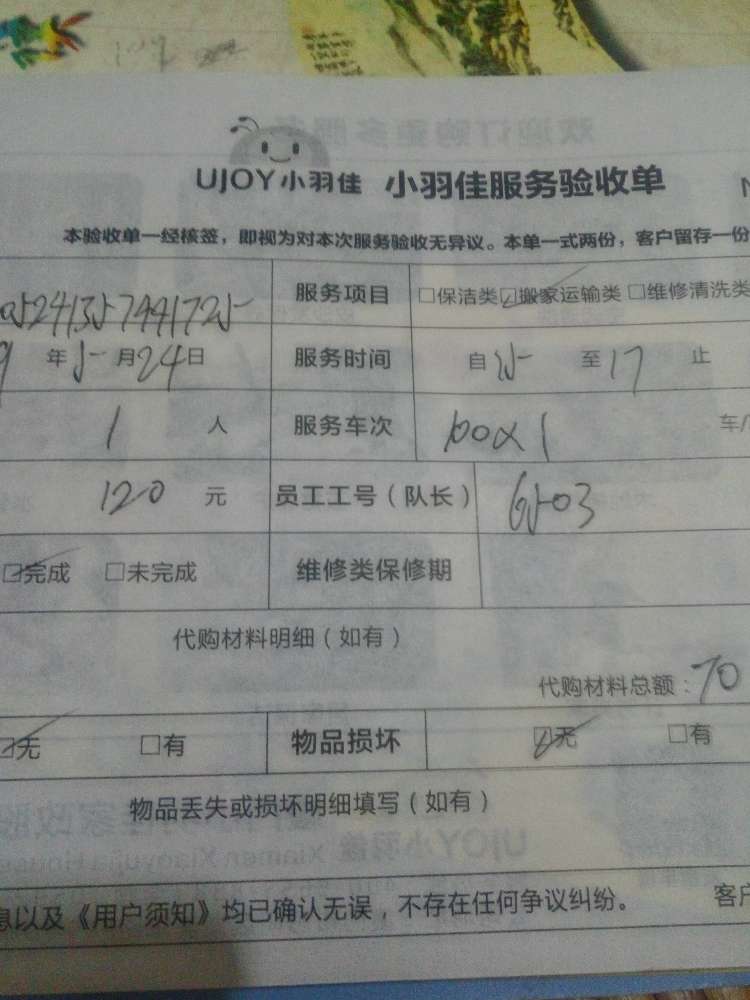 UJOY小羽佳 小羽佳服务验收单
本验收单一经核签，即视为对本次服务验收无异议。本单一式两份，客户留存一份
服务项目 □保洁类☑搬家运输类 □维修清洗类
年5月24日 服务时间 自15至17止
1人 服务车次
120元 员工工号（队长） 6503
☑完成 □未完成 维修类保修期
代购材料明细（如有）
代购材料总额：70
☑无 □有 物品损坏 ☑无 □有
物品丢失或损坏明细填写（如有）
息以及《用户须知》均已确认无误，不存在任何争议纠纷。 客户